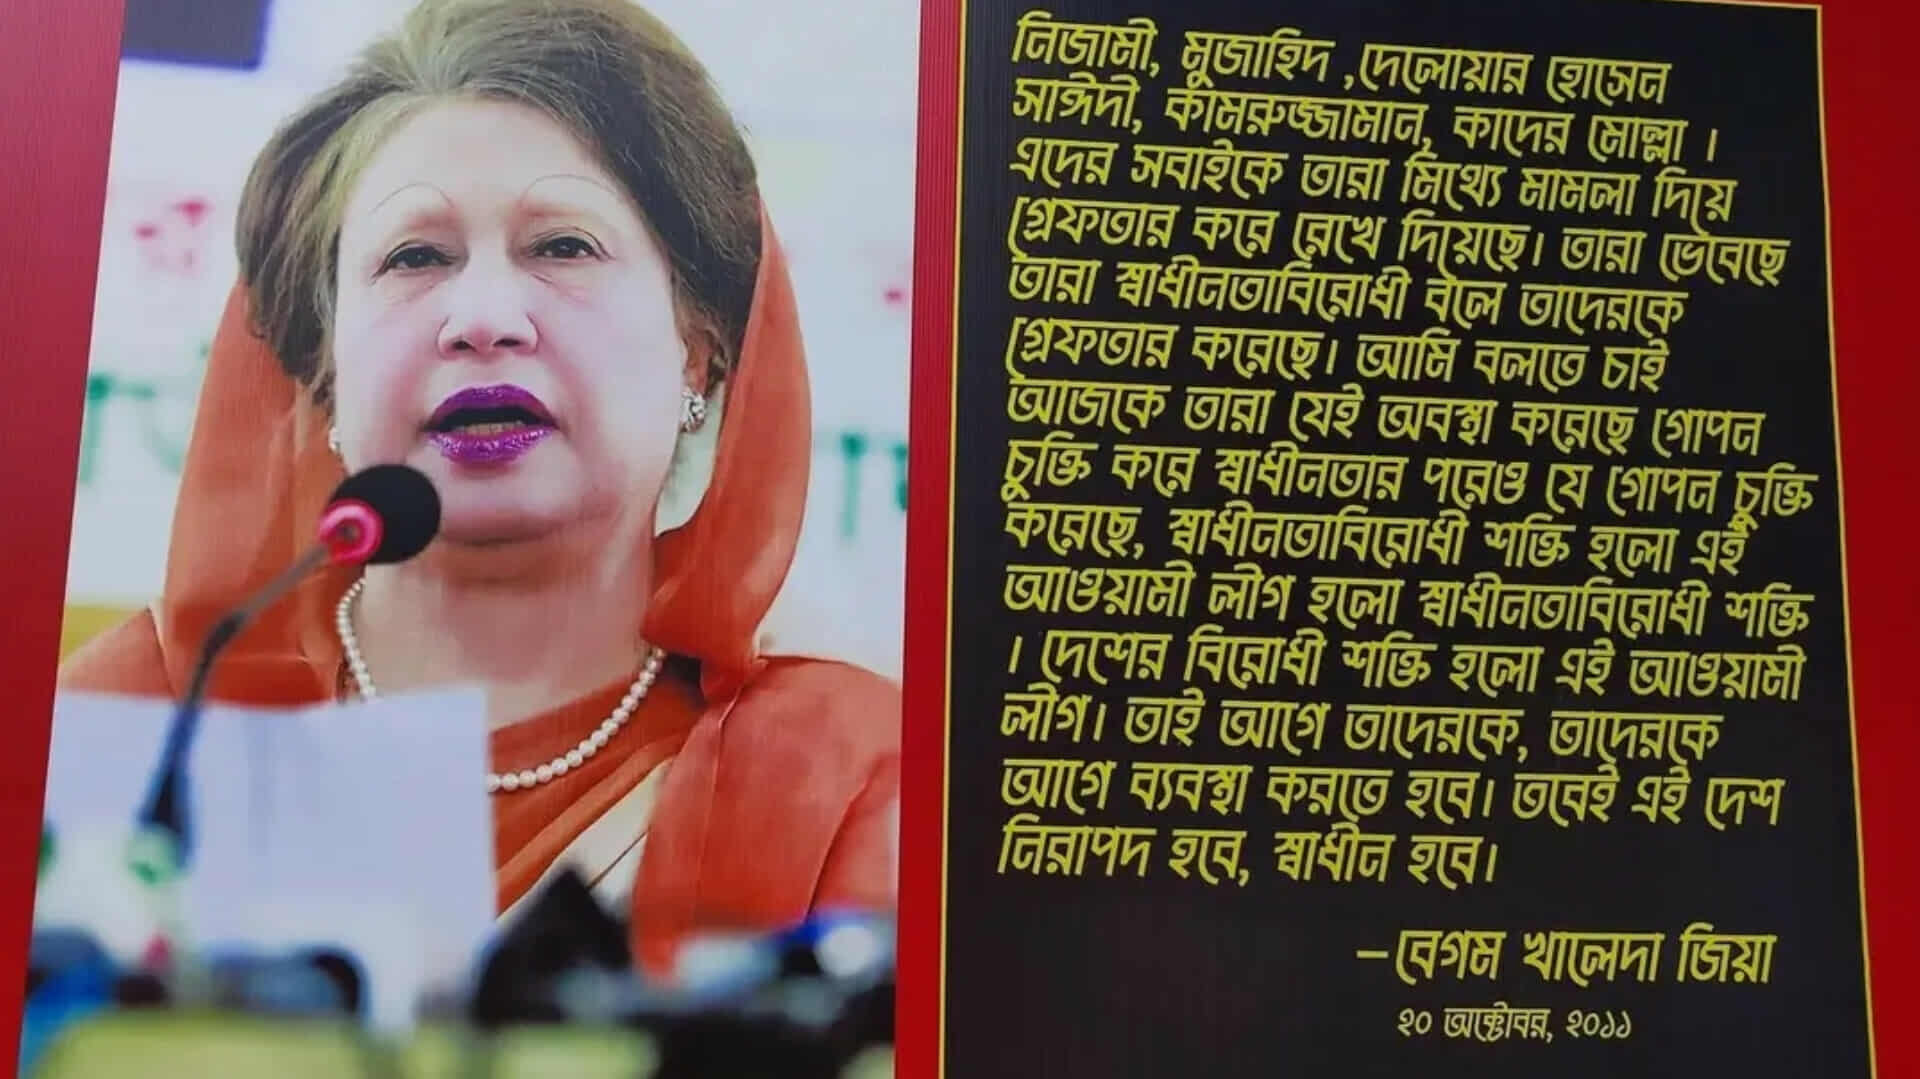 নিজামী, মুজাহিদ ,দেলোয়ার হোসেন
সাঈদী, কামরুজ্জামান, কাদের মোল্লা ।
এদের সবাইকে তারা মিথ্যে মামলা দিয়ে
গ্রেফতার করে রেখে দিয়েছে। তারা ভেবেছে
তারা স্বাধীনতাবিরোধী বলে তাদেরকে
গ্রেফতার করেছে। আমি বলতে চাই
আজকে তারা যেই অবস্থা করেছে গোপন
চুক্তি করে স্বাধীনতার পরেও যে গোপন চুক্তি
করেছে, স্বাধীনতাবিরোধী শক্তি হলো এই
আওয়ামী লীগ হলো স্বাধীনতাবিরোধী শক্তি
। দেশের বিরোধী শক্তি হলো এই আওয়ামী
লীগ। তাই আগে তাদেরকে, তাদেরকে
আগে ব্যবস্থা করতে হবে। তবেই এই দেশ
নিরাপদ হবে, স্বাধীন হবে।
–বেগম খালেদা জিয়া
২০ অক্টোবর, ২০১১